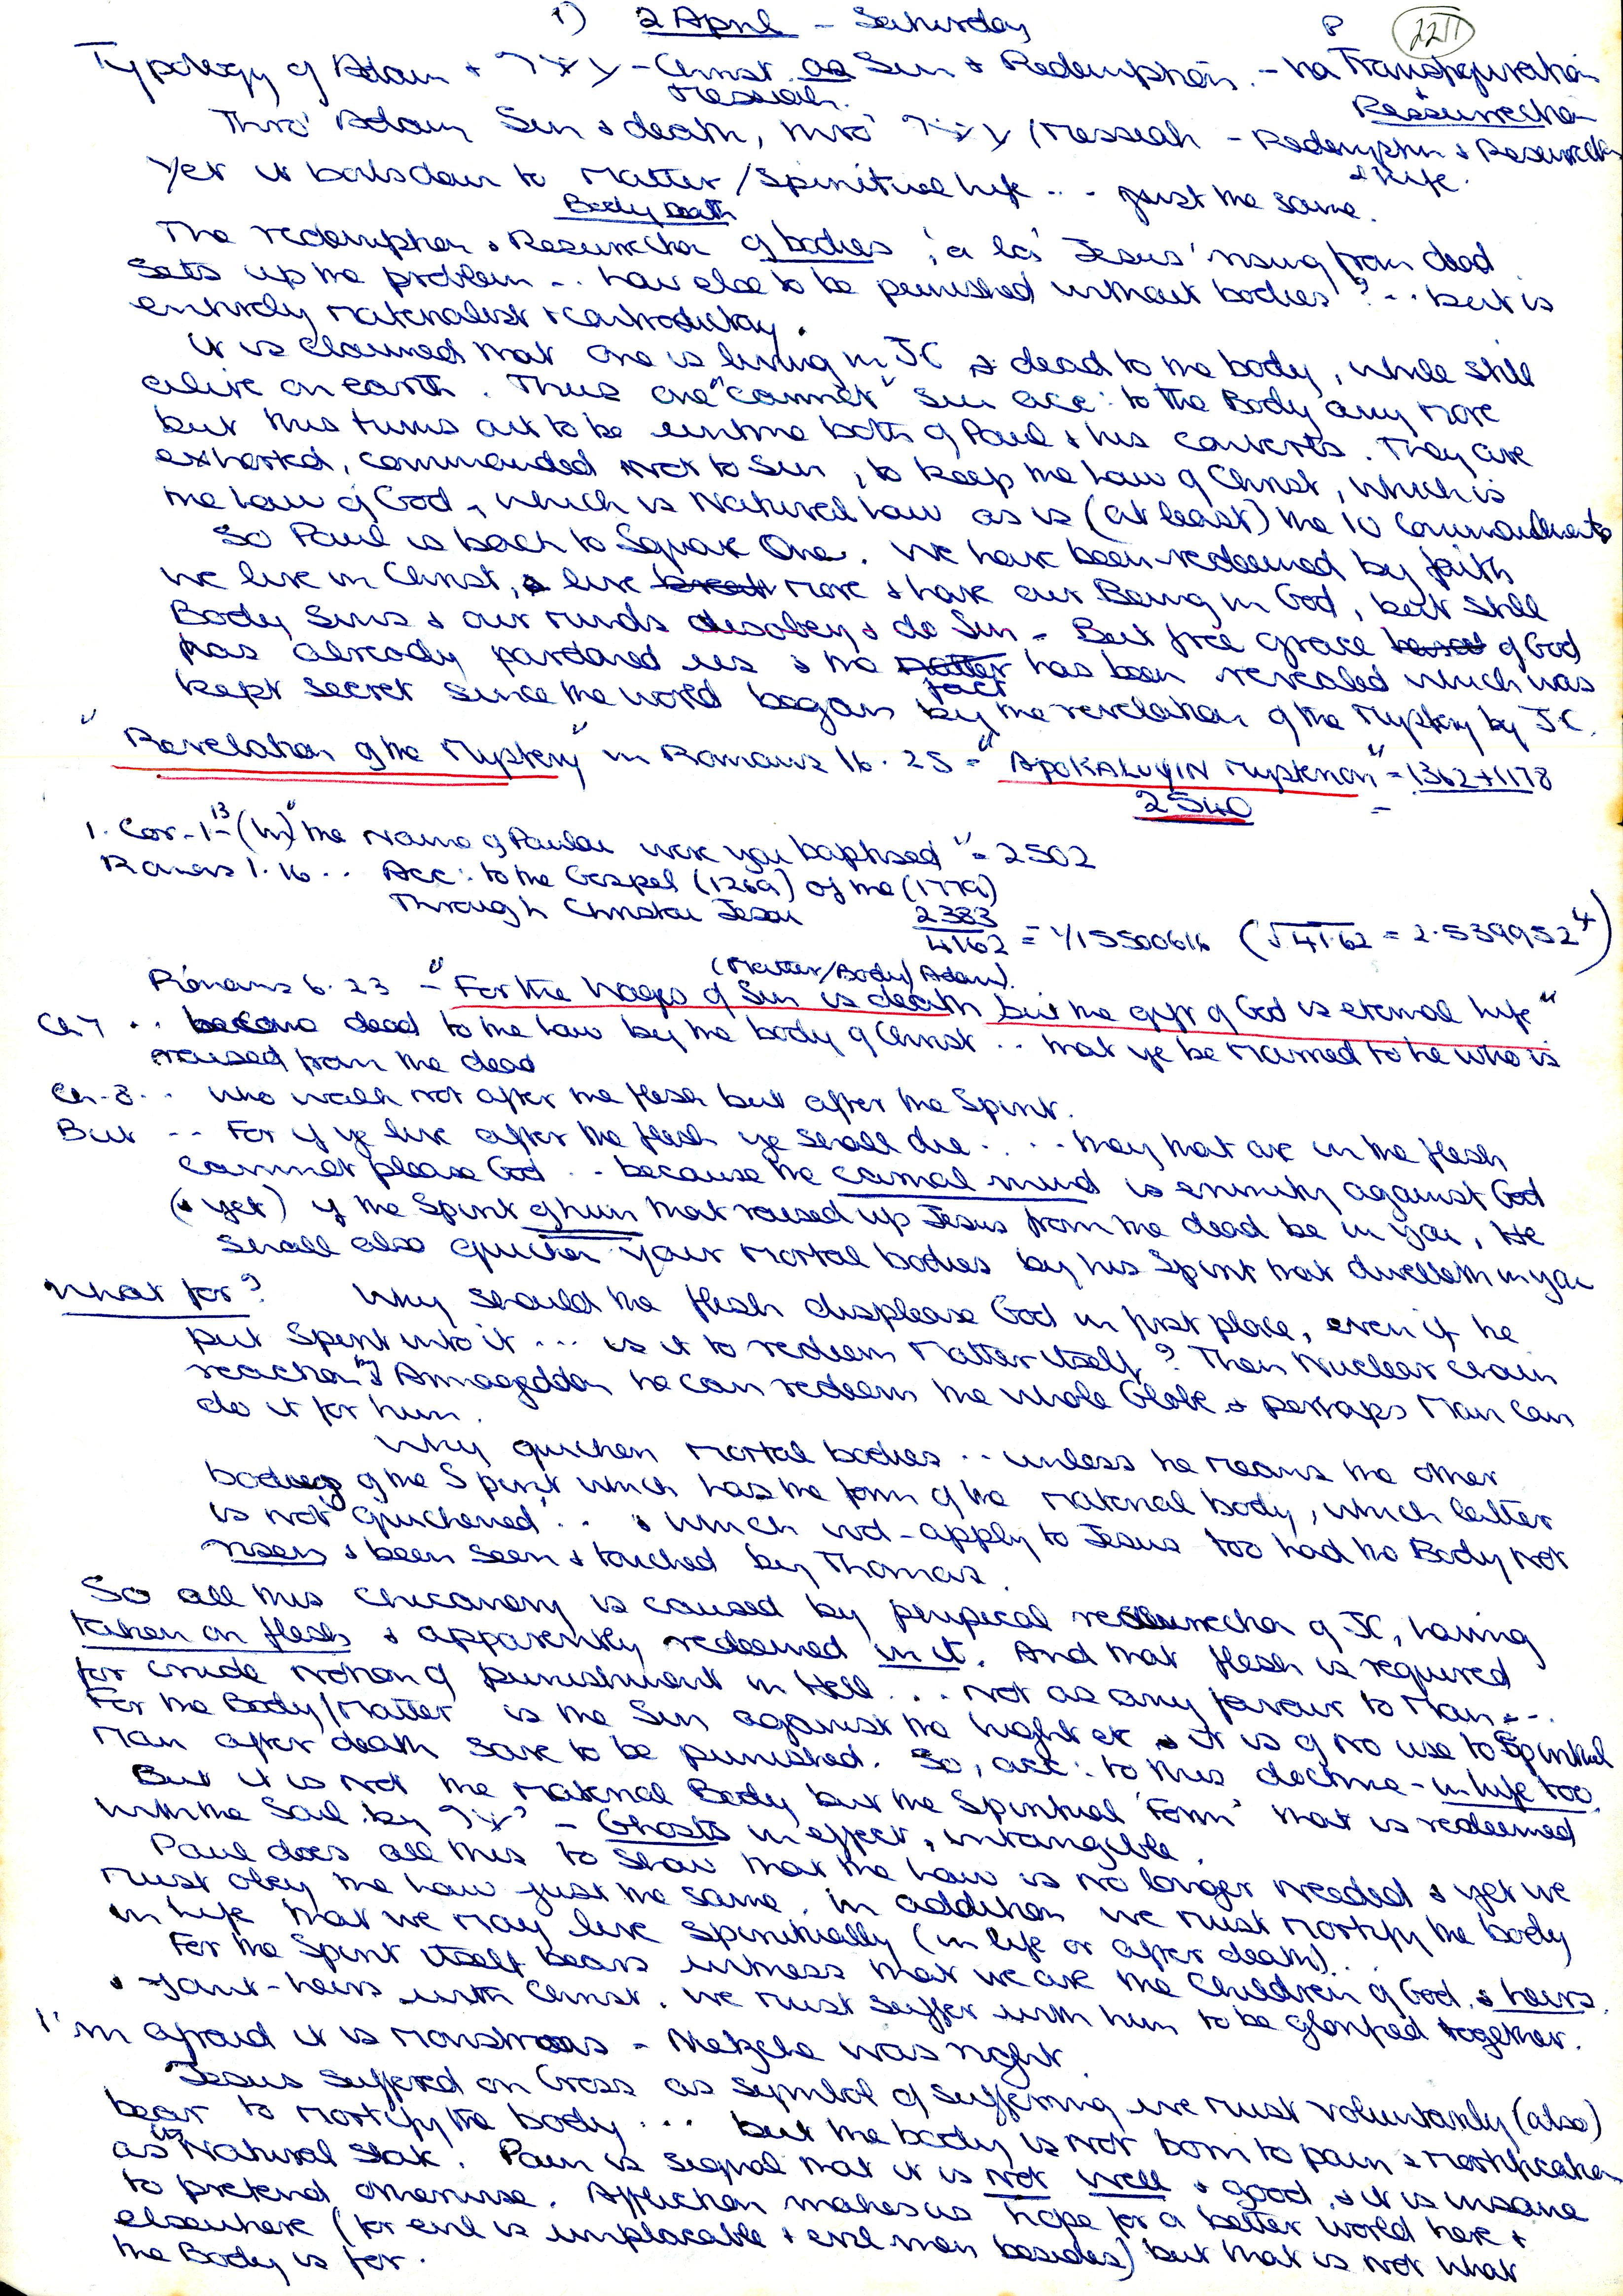 1) 2 April - Saturday P 22II
Typology of Adam + - Christ as Sin & Redemption. - via Transfiguration
Messiah. + Ressurrection
Thro' Adam Sin & death, thro' / Messiah - Redemption & Resurrection
& life.
Yet it boils down to Matter / Spiritual life .. - just the same.
Body Death
The redemption & Resurrection of bodies, 'a la' Jesus' rising from dead
sets up the problem .. how else to be punished without bodies? .. but is
entirely materialist & contradictory.
It is claimed that one is living in JC & dead to the body, while still
alive on earth. Thus one "cannot" sin acc: to the Body any more
but this turns out to be untrue both of Paul & his converts. They are
exhorted, commanded not to Sin, to keep the Law of Christ, which is
the Law of God, which is Natural Law as is (at least) the 10 Commandments
So Paul is back to Square One. We have been redeemed by faith
we live in Christ, & live move & have our Being in God, but still
Body Sins & our minds disobey & do Sin - But free grace of God
has already pardoned us & the matter has been revealed which was
fact
kept secret since the world began by the revelation of the Mystery by JC.
"Revelation of the Mystery" in Romans 16.25 = "ApoKALUYIN Mysterion" = 1362+1178
2540 =
1. Cor-1-13 (In) "the Name of Paulou were you baptised" = 2502
Romans 1.16 .. Acc: to the Gospel (1269) of me (1779)
Through Christou Jesou 2383
4162 = 1/15500616 (√41.62 = 2.539952 4)
(Matter/Body/Adam).
Romans 6.23 - "For the wages of Sin is death but the gift of God is eternal life"
Ch 7 .. become dead to the law by the body of Christ .. that ye be married to he who is
raised from the dead
Ch-8 .. who walk not after the flesh but after the Spirit.
But .. For if ye live after the flesh ye shall die .. .. they that are in the flesh
cannot please God .. because the carnal mind is enmity against God
(& yet) if the Spirit of him that raised up Jesus from the dead be in you, He
shall also quicken your mortal bodies by his Spirit that dwelleth in you
What for? Why should the flesh displease God in first place, even if he
put Spirit into it ... is it to redeem Matter itself? Then Nuclear chain
reaction in Armageddon he can redeem the whole Globe & perhaps Man can
do it for him.
Why quicken mortal bodies .. unless he means the other
bodies of the Spirit which has the form of the material body, which latter
is not 'quickened' .. & which wd - apply to Jesus too had the Body not
risen & been seen & touched by Thomas.
So all this chicanery is caused by physical resurrection of JC, having
taken on flesh & apparently redeemed in it. And that flesh is required
for crude notion of punishment in Hell ... not as any favour to Man ...
For the Body/Matter is the Sin against the light etc & it is of no use to Spiritual
Man after death save to be punished. So, acc: to this doctrine - in life too.
But it is not the material Body but the Spiritual 'Form' that is redeemed
with the Soul by - Ghosts in effect, intangible.
Paul does all this to show that the Law is no longer needed & yet we
must obey the Law just the same, in addition we must mortify the body
in life that we may live spiritually (in life or after death) ..
For the Spirit itself bears witness that we are the Children of God, & heirs.
& joint-heirs with Christ. We must suffer with him to be glorified together.
I'm afraid it is monstrous - Nietzche was right.
Jesus suffered on Cross as symbol of suffering we must voluntarily (also)
bear to mortify the body ... but the body is not born to pain & mortification
as its Natural State. Pain is signal that it is not well & good, & it is insane
to pretend otherwise. Affliction makes us hope for a better world here &
elsewhere (for evil is implacable & evil men besides) but that is not what
the Body is for.